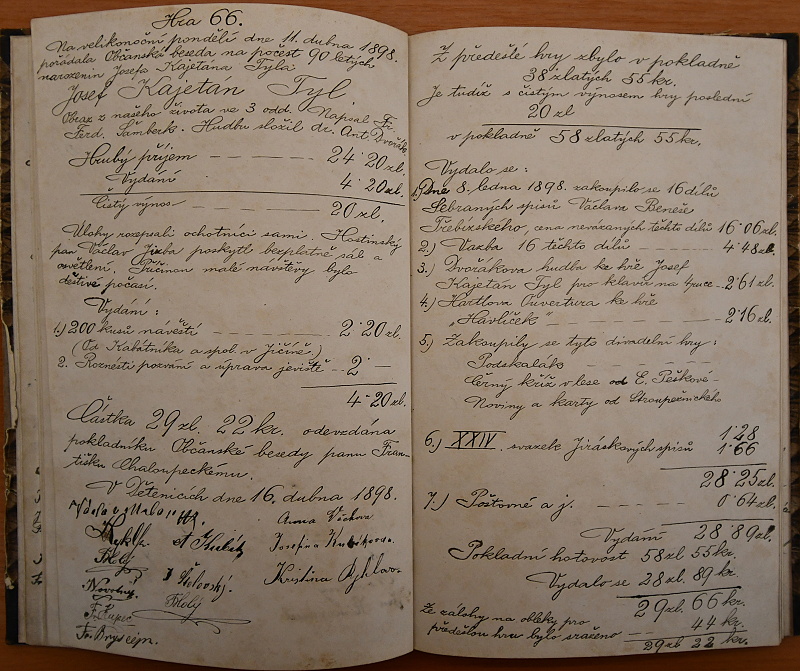 Hra 66.
Na velikonoční pondělí dne 11. dubna 1898.
pořádala Občanská beseda na počest 90 letých
narozenin Josefa Kajetána Tyla
Josef Kajetán Tyl
Obraz z našeho života ve 3 odd. Napsal Fr.
Ferd. Šamberk. Hudbu složil dr. Ant. Dvořák
Hrubý příjem — — — — — 24·20 zl.
Vydání 4·20 zl.
Čistý výnos — — — — 20 zl.
Úlohy rozepsali ochotníci sami. Hostinský
pan Václav Jizba poskytl bezplatně sál a
osvětlení. Příčinou malé návštěvy bylo
deštivé počasí.
Vydání:
1.) 200 kusů návěští — — — — 2·20 zl.
(Od Kabátníka a spol. v Jičíně)
2. Roznésti pozvání a úprava jeviště — 2 —
4·20 zl.
Částka 29 zl. 22 kr. odevzdána
pokladníku Občanské besedy panu Fran-
tišku Chaloupeckému.
V Dětenicích dne 16. dubna 1898.
Anna
Josefina
Kristina
Novotný
Fr. Brys
Z předešlé hry zbylo v pokladně
38 zlatých 55 kr.
Je tudíž s čistým výnosem hry poslední
20 zl
v pokladně 58 zlatých 55 kr.
Vydalo se:
1.) Dne 8. ledna 1898 zakoupilo se 16 dílů
Sebraných spisů Václava Beneše
Třebízského, cena nevázaných těchto dílů 16·06 zl.
2.) Vazba 16 těchto dílů — — — — 4·48 zl.
3.) Dvořákova hudba ke hře Josef
Kajetán Tyl pro klavír na 4 ruce — 2·61 zl.
4.) Hartlova Ouvertura ke hře
„Havlíček“ — — — — — 2·16 zl.
5.) Zakoupily se tyto divadelní hry:
Podskalák — — — —
Černý kříž v lese od E. Peškové —
Noviny a karty od Stroupežnického
1·28
6.) XXIV. svazek Jiráskových spisů 1·66
28·25 zl.
7.) Poštovné a j. — — — — 0·64 zl.
Vydání 28·89 zl.
Pokladní hotovost 58 zl 55 kr.
Vydalo se 28 zl. 89 kr.
29 zl. 66 kr.
Ze zálohy na obleky pro
předešlou hru bylo sraženo — — 44 kr.
29 zl 22 kr.